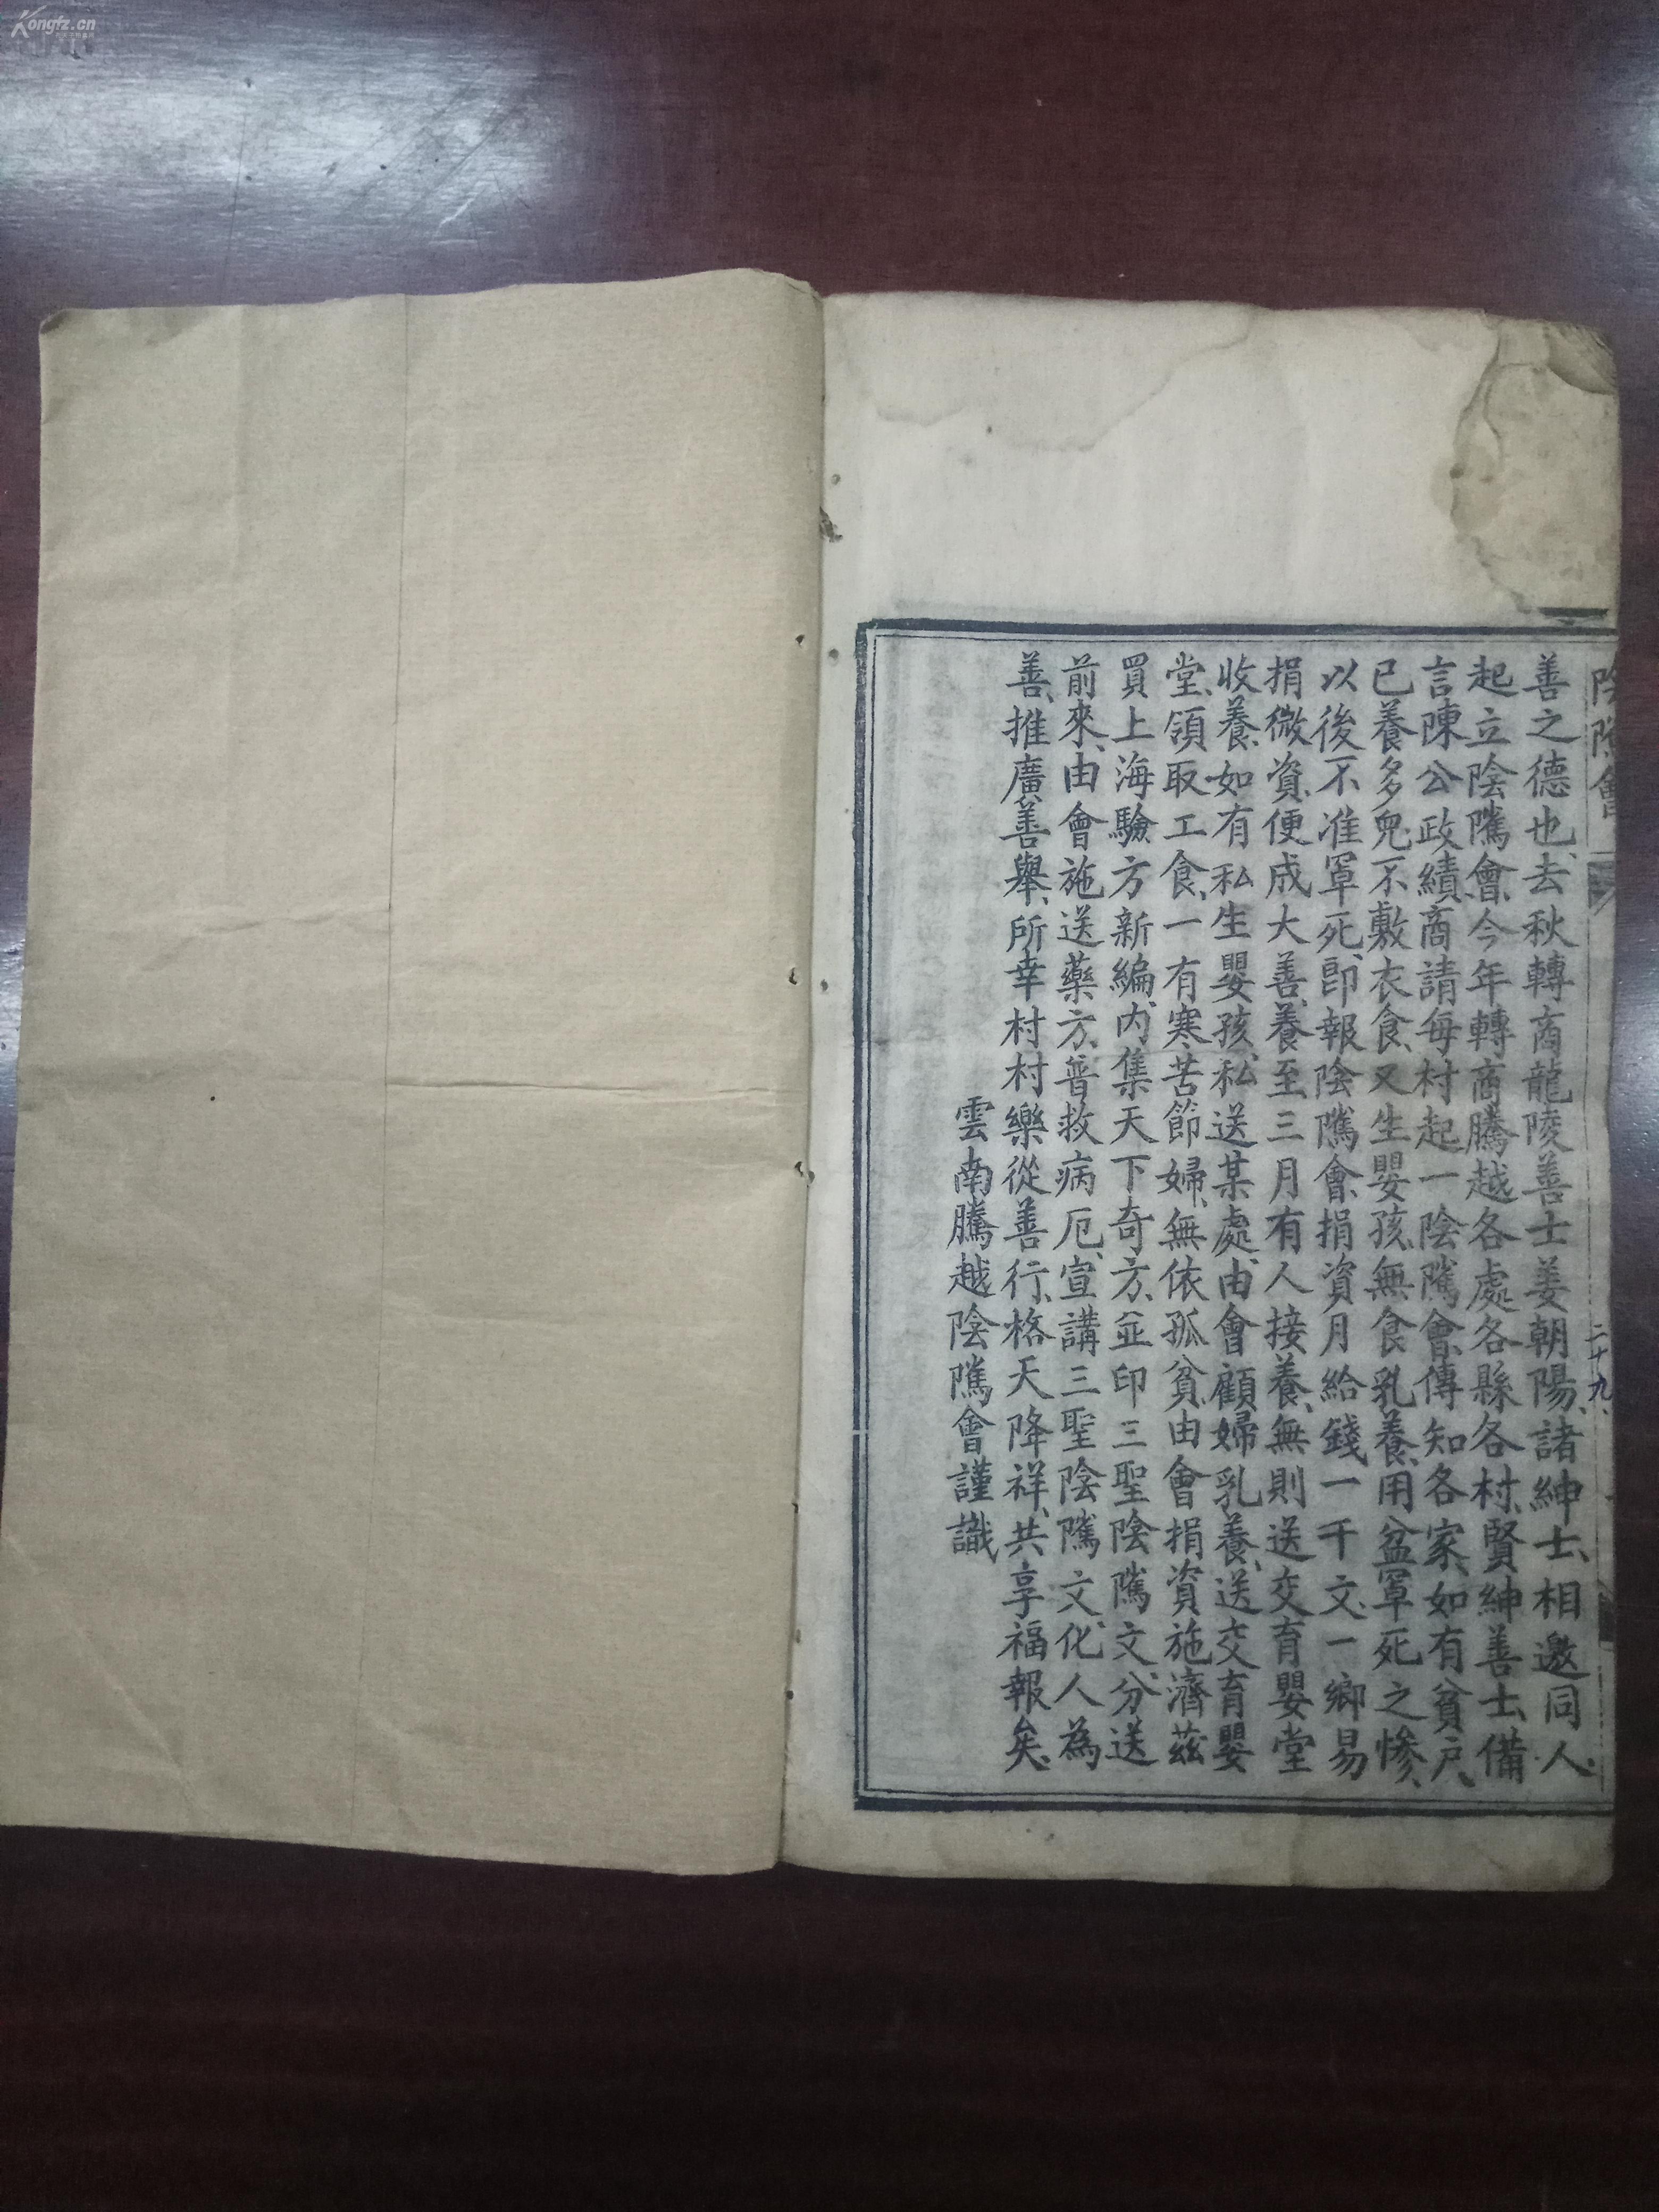 Kongfz.cn
陰隲會
二十九
善之德也、去秋轉商龍陵善士姜朝陽、諸紳士、相邀同人、
起立陰隲會、今年轉商騰越各處各縣各村、賢紳善士、備
言陳公政績、商請每村起一陰隲會、傳知各家、如有貧戶、
已養多兒、不敷衣食、又生嬰孩、無食乳養、用盆罩死之慘、
以後不准罩死、即報陰隲會、捐資月給錢一千文、一鄉易
捐微資、便成大善、養至三月有人接養、無則送交育嬰堂
收養、如有私生嬰孩、私送某處、由會顧婦乳養、送交育嬰
堂、領取工食、一有寒苦節婦、無依孤貧、由會捐資施濟茲
買上海驗方新編、內集天下奇方、並印三聖陰隲文、分送
前來、由會施送藥方、普救病厄、宣講三聖陰隲文、化人為
善、推廣善舉、所幸村村樂從善行、格天降祥、共享福報矣、
雲南騰越陰隲會謹識